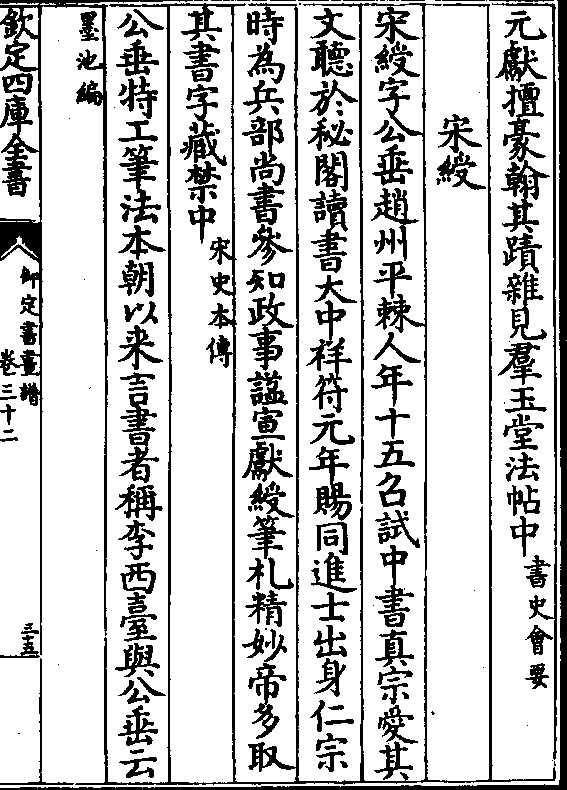 元獻擅豪翰其蹟雜見羣玉堂法帖中書史會要
宋綬
宋綬字公垂趙州平棘人年十五召試中書真宗愛其
文聽於秘閣讀書大中祥符元年賜同進士出身仁宗
時為兵部尚書參知政事諡宣獻綬筆札精妙帝多取
其書字藏禁中宋史本傳
公垂特工筆法本朝以来言書者稱李西臺與公垂云
墨池編
欽定四庫全書
御定書畫譜
卷三十二
三五